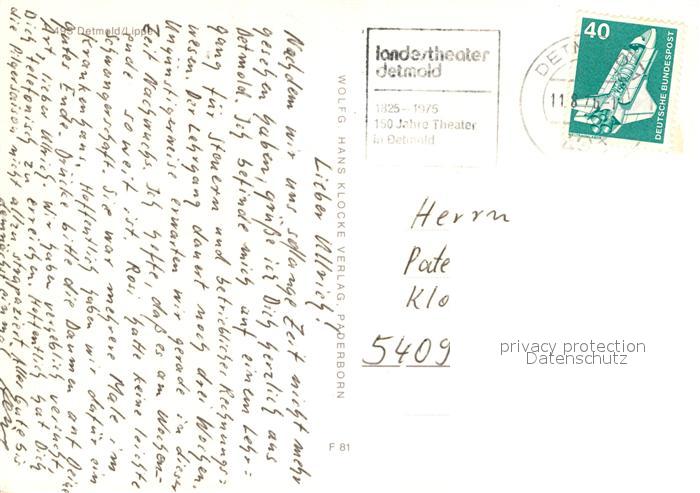 495 Detmold/Lippe
Lieber Ullrich!
Nachdem wir uns solange Zeit nicht mehr
gesehen haben, grüße ich Dich herzlich aus
Detmold. Ich befinde mich auf einem Lehr=
gang für Steuern und betriebliches Rechnungs=
wesen. Der Lehrgang dauert noch drei Wochen.
Ungünstigerweise erwarten wir gerade in dieser
Zeit Nachwuchs. Ich hoffe, daß es am Wochen-
ende soweit ist. Rosi hatte keine leichte
Schwangerschaft. Sie war mehrere Male im
Krankenhaus. Hoffentlich haben wir dafür ein
gutes Ende. Drücke bitte die Daumen auf
Lieber Ullrich, wir haben vergeblich versucht,
Dich telefonisch zu erreichen. Hoffentlich hat Dich
die nicht allzu strapaziert. Alles Gute bis
demnächst einmal
WOLFG. HANS KLOCKE VERLAG, PADERBORN
F 81
landestheater
detmold
1825-1975
150 Jahre Theater
in Detmold
DETM
11.8.76
40
DEUTSCHE BUNDESPOST
Herrn
Pate
Klo
5409
privacy protection
Datenschutz